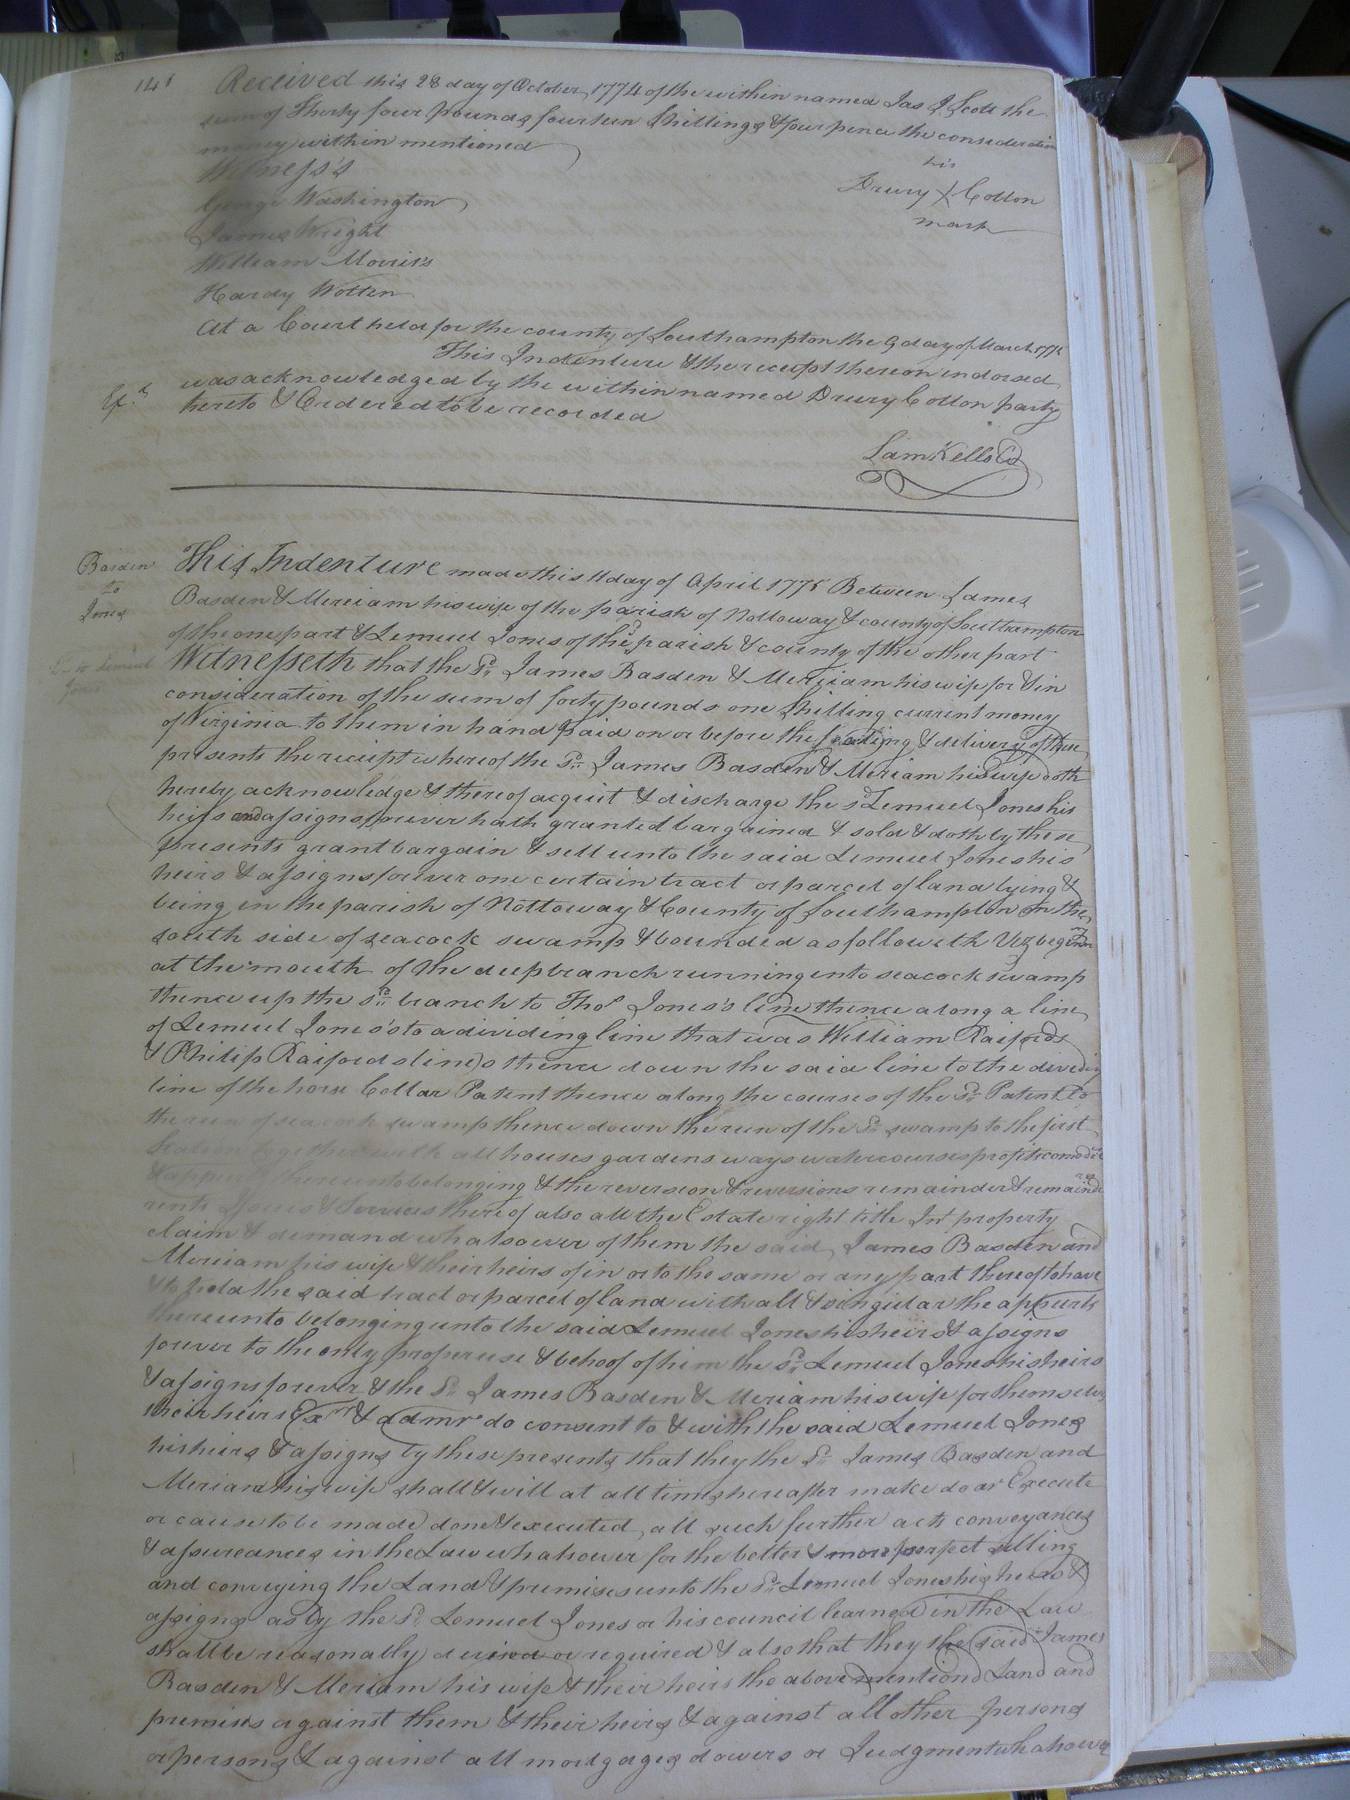 148
Received this 28 day of October 1774 of the within named Jas J Scott the
sum of Thirty four pounds fourteen Shillings & four pence the consideration
money within mentioned
Witness's
George Washington
James Wright
William Morris
Hardy Wotten
his
Drury X Cotton
mark
At a Court held for the county of Southampton the 9 day of March 1775
This Indenture & the receipt thereon indorsed
was acknowledged by the within named Drury Cotton party
hereto & Ordered to be recorded
Ex.d
Sam Kello Cs
Basden
to
Jones
This Indenture made this 11 day of April 1775 Between James
Basden & Merriam his wife of the parish of Nottoway & county of Southampton
of the one part & Lemuel Jones of the sd parish & county of the other part
Lemuel
Jones
Witnesseth that the Sd. James Basden & Merriam his wife for & in
consideration of the sum of forty pounds one Shilling current money
of Virginia to them in hand paid on or before the sealing & delivery of these
presents the reciept whereof the Sd. James Basden & Meriam his wife doth
hereby acknowledge & thereof acquit & discharge the sd Lemuel Jones his
heirs and assigns forever hath granted bargained & sold & doth by these
presents grant bargain & sell unto the said Lemuel Jones his
heirs & assigns forever one certain tract or parcel of land lying &
being in the parish of Nottoway & County of Southampton on the
south side of seacock swamp & bounded as followeth Viz begining
at the mouth of the deep branch running into seacock swamp
thence up the sd. branch to Thos Jones's line thence along a line
of Lemuel Jones's to a dividing line that was William Raifords
& Philip Raifords line)s thence down the said line to the dividing
line of the horse Collar Patent thence along the courses of the Sd. Patent to
the run of seacock swamp thence down the run of the Sd. swamp to the first
Station together with all houses gardens ways watercourses profits comodities
& appurts thereunto belonging & the reversion & reversions remainder & remainders
rents Issues & Services thereof also all the Estate right title Int property
claim & demand whatsoever of them the said James Basden and
Merriam his wife & their heirs of in or to the same or any part thereof to have
& to hold the said tract or parcel of land with all & singular the appurts
thereunto belonging unto the said Lemuel Jones his heirs & assigns
forever to the only proper use & behoof of him the Sd. Lemuel Jones his heirs
& assigns forever & the Sd. James Basden & Meriam his wife for themselves
their heirs Exrs & admrs do consent to & with the said Lemuel Jones
his heirs & assigns by these presents that they the Sd. James Basden and
Meriam his wife shall & will at all times hereafter make do or Execute
or cause to be made done & executed all such further acts conveyances
& assureances in the Law whatsoever for the better & more perfect selling
and conveying the Land & premises unto the Sd. Lemuel Jones his heirs &
assigns as by the sd. Lemuel Jones or his council learned in the Law
shall be reasonably devised or required & also that they the said James
Basden & Meriam his wife & their heirs the above mentiond Land and
premises against them & their heirs & against all other persons
or persons & against all mortgages dowers or Judgments whatsoever